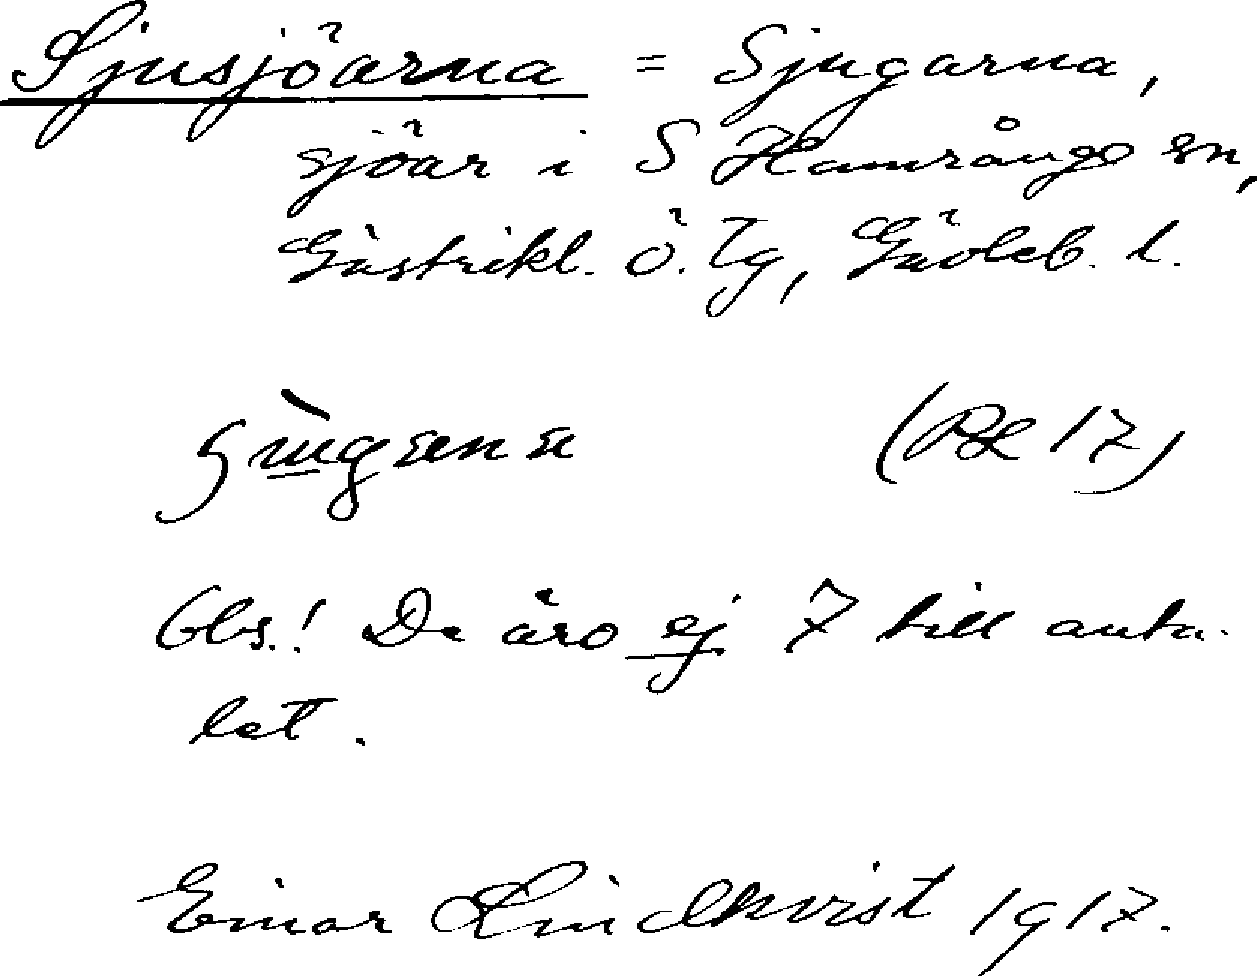 Sjusjöarna = Sjugarna,
sjöar i S Hamrånge sn,
Gästrikl. ö. Tg, Gävleb. l.
Obs.! De äro ej 7 till anta-
let.
Einar Lindkvist 1917.